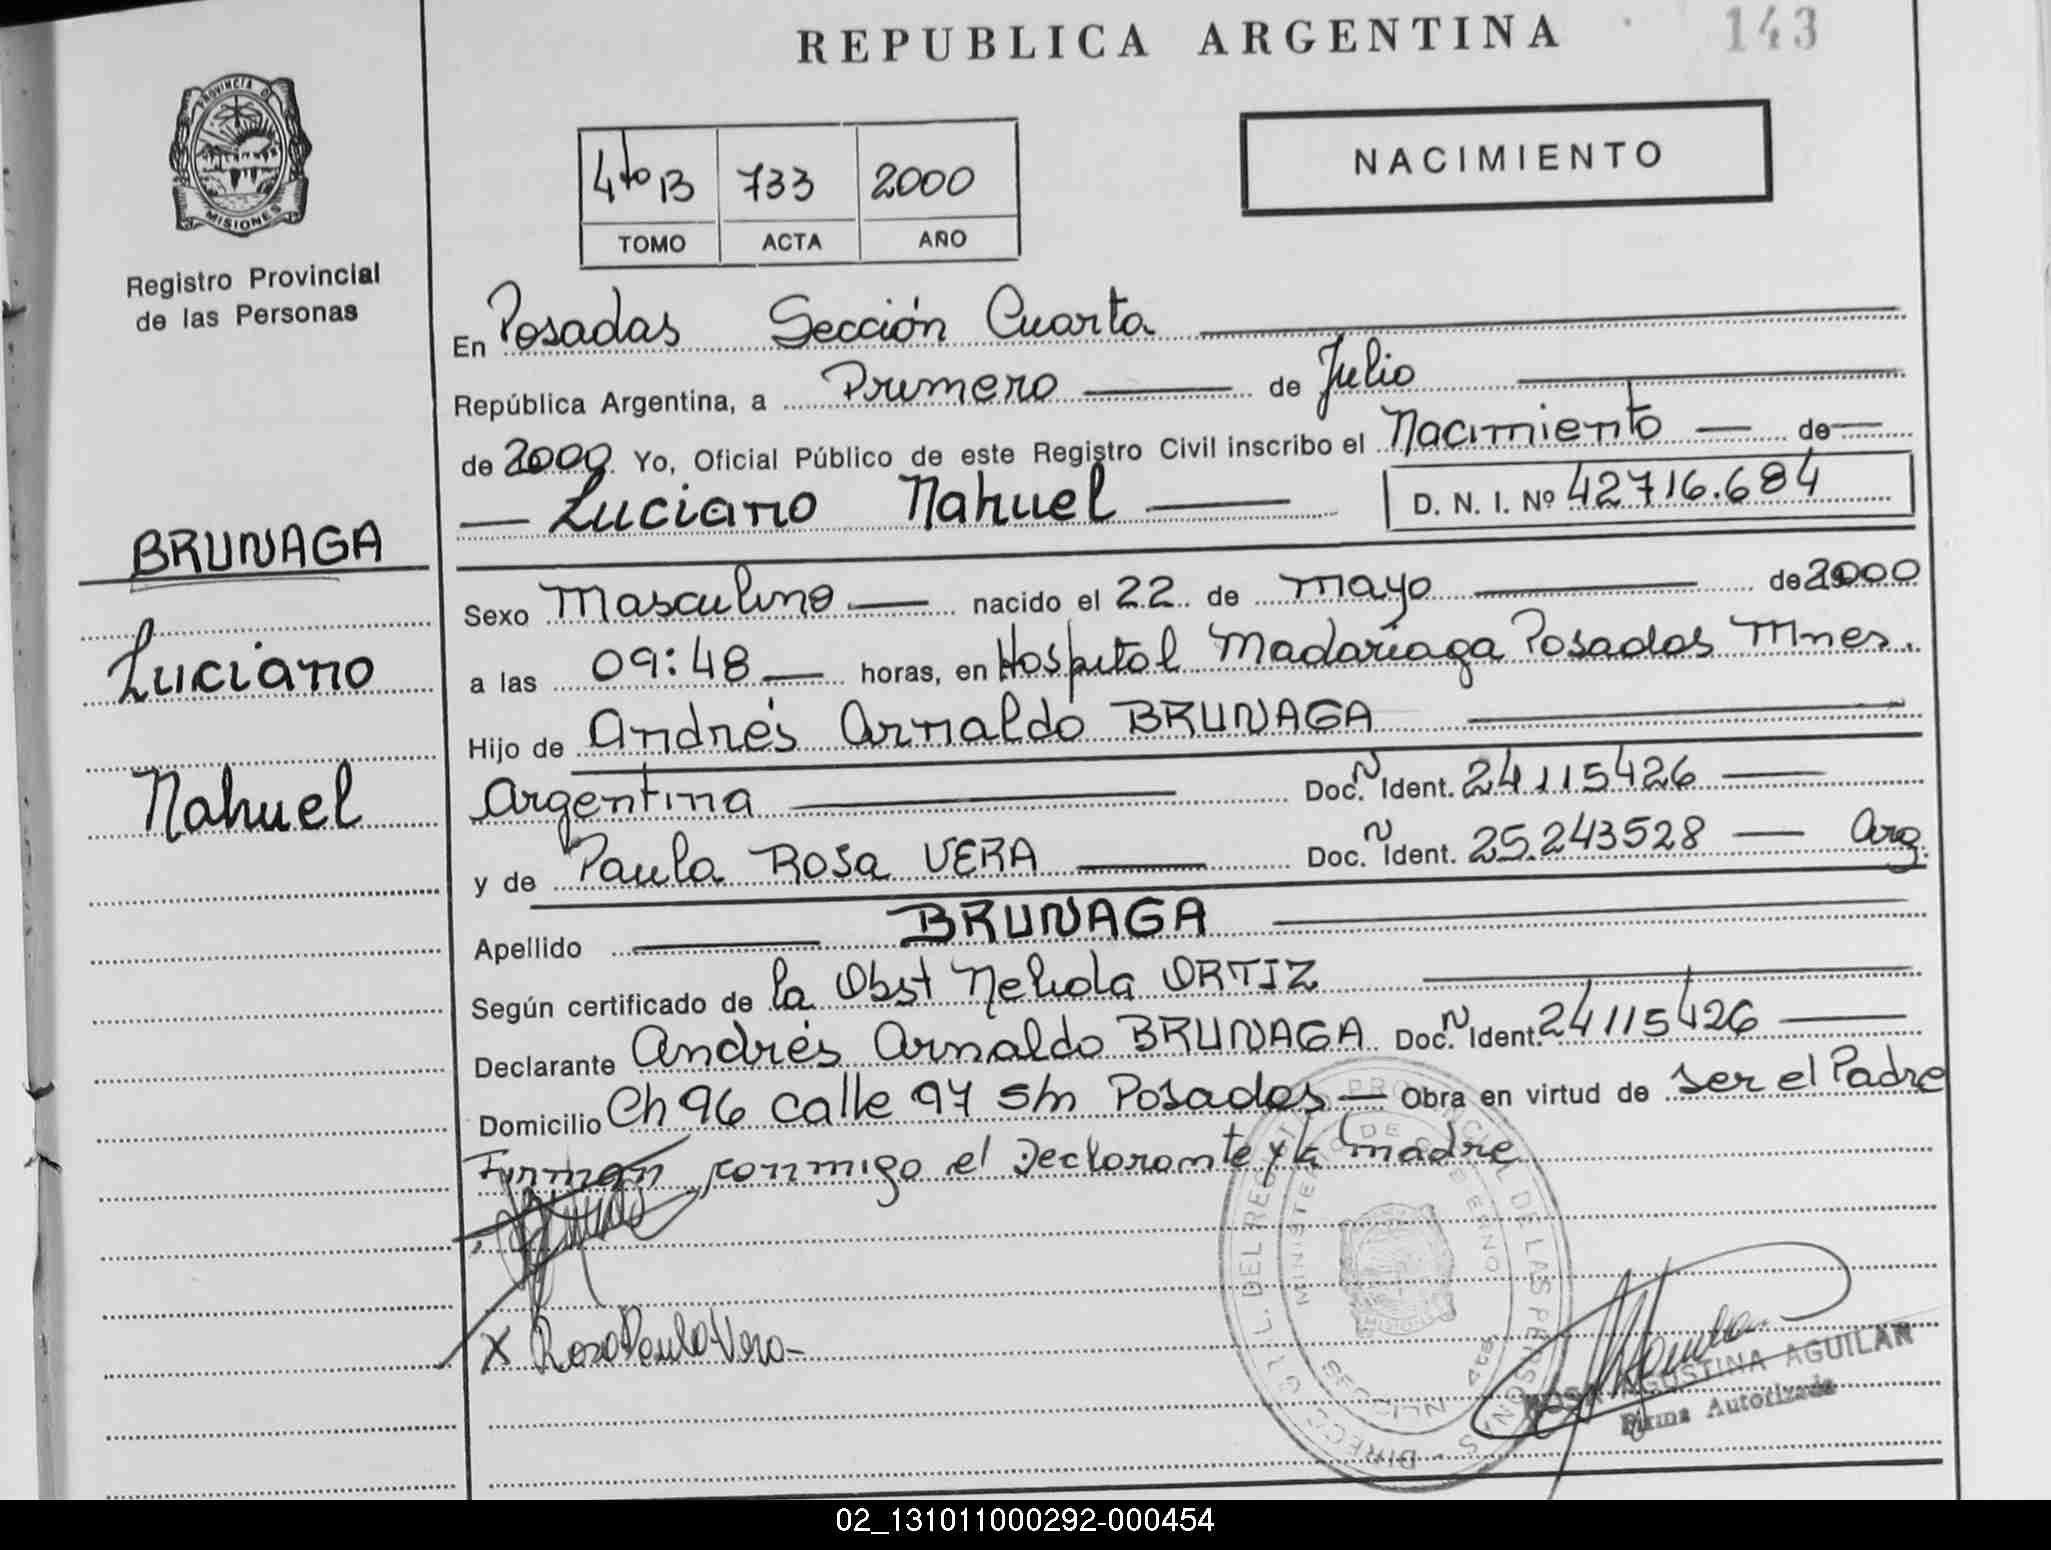 REPUBLICA ARGENTINA
143
PROVINCIA DE
MISIONES
Registro Provincial
de las Personas
4to B 733 2000
TOMO ACTA AÑO
NACIMIENTO
En Posadas Sección Cuarta
República Argentina, a Primero de Julio
de 2000 Yo, Oficial Público de este Registro Civil inscribo el Nacimiento de
Luciano Nahuel D. N. I. Nº 42716.684
BRUNAGA
Luciano
Nahuel
Sexo Masculino nacido el 22 de mayo de 2000
a las 09:48 horas, en Hospital Madariaga Posadas Mnes.
Hijo de Andrés Arnaldo BRUNAGA
Argentina Doc. N Ident. 24115426
y de Paula Rosa VERA Doc. N Ident. 25.243528 Arg.
Apellido BRUNAGA
Según certificado de la Obst Nelida ORTIZ
Declarante Andrés Arnaldo BRUNAGA Doc. N Ident. 24115426
Domicilio Ch 96 calle 97 s/n Posadas Obra en virtud de ser el Padre
Firman conmigo el Declarante y la madre
X Rosa Paula Vera
ROSA AGUSTINA AGUILAR
Firma Autorizada
02_131011000292-000454